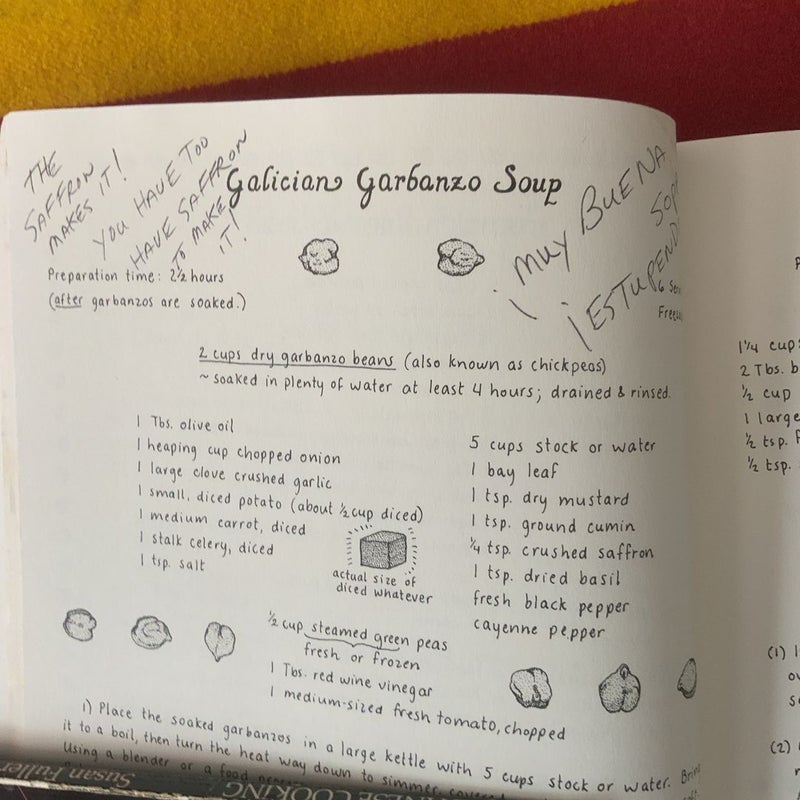 THE
SAFFRON
MAKES IT!
YOU HAVE TOO
HAVE SAFFRON
TO MAKE
IT!
Galician Garbanzo Soup
¡ MUY BUENA
¡ESTUPEND
Preparation time: 2½ hours
(after garbanzos are soaked.)
2 cups dry garbanzo beans (also known as chickpeas)
~ soaked in plenty of water at least 4 hours; drained & rinsed.
1 Tbs. olive oil
1 heaping cup chopped onion
1 large clove crushed garlic
1 small, diced potato (about ½ cup diced)
1 medium carrot, diced
1 stalk celery, diced
1 tsp. salt
actual size of
diced whatever
5 cups stock or water
1 bay leaf
1 tsp. dry mustard
1 tsp. ground cumin
¼ tsp. crushed saffron
1 tsp. dried basil
fresh black pepper
cayenne pepper
½ cup steamed green peas
fresh or frozen
1 Tbs. red wine vinegar
1 medium-sized fresh tomato, chopped
1) Place the soaked garbanzos in a large kettle with 5 cups stock or water. Bring
it to a boil, then turn the heat way down to simmer, covered
Using a blender or a food
1¼ cup
2 Tbs. b
½ cup
1 large
½ tsp.
½ tsp.
(1)
(2)
Susan Fuller
COOKING